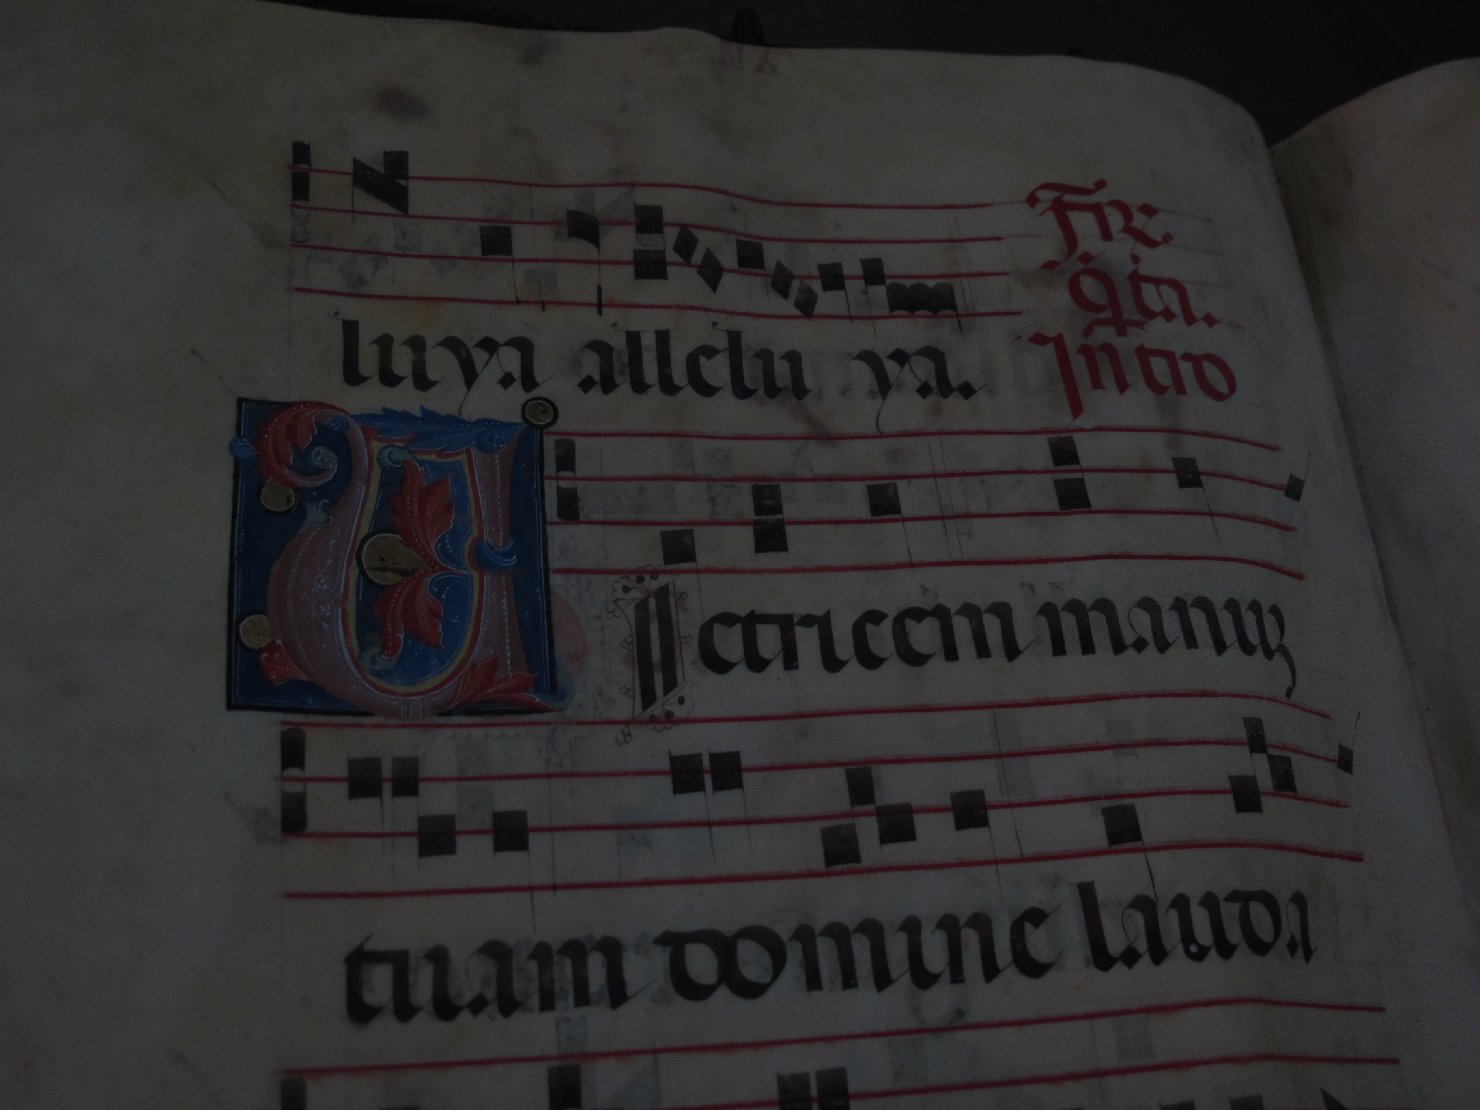 luya allelu ya.
Fr̄e
q̄ta.
Intro
VIctricem manuȝ
tuam domine lauda